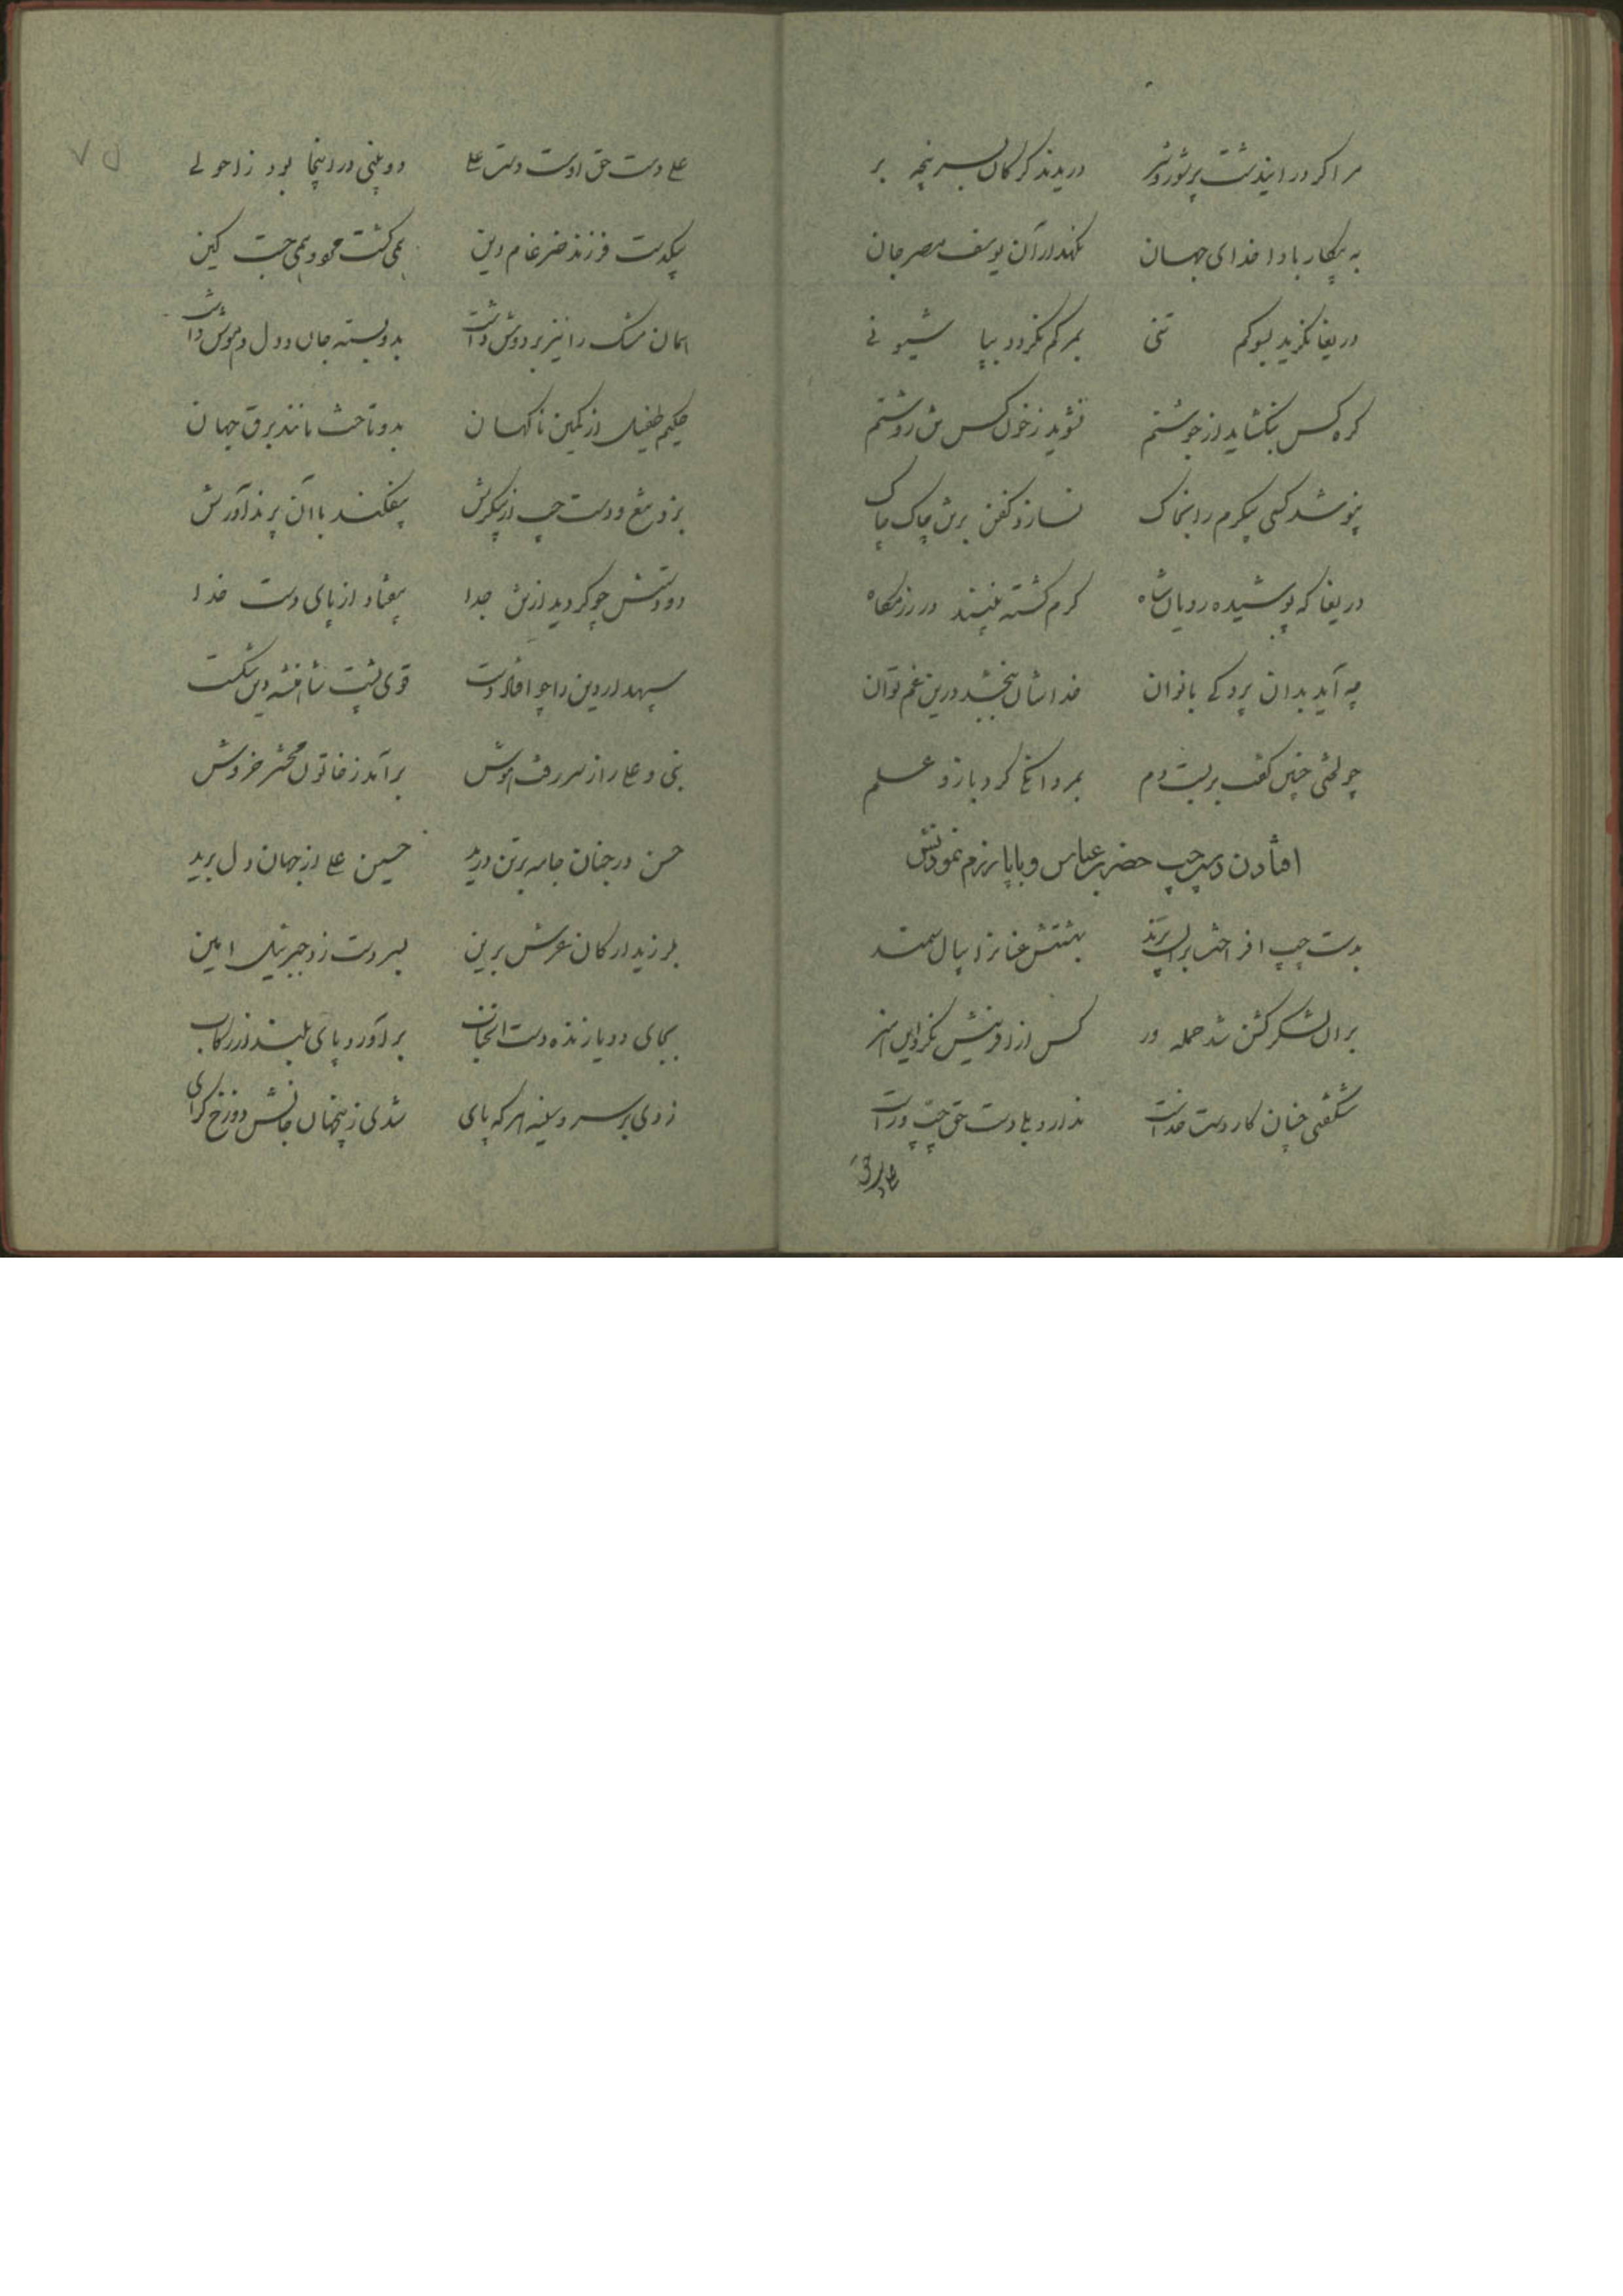 مرا گر در ایندشت پر شور و شر دریدند گرگان بسر پنجه بر
به پیکار بادا خدای جهان نگهدار آن یوسف مصر جان
دریغا نگرید بسوکم تنی بمرگم نگردد بپا شیونی
گره کس نگشاید از جوشنم نشوید ز خون کس تن روشنم
نپوشد کسی پیکرم را بخاک نسازد کفن برتن چاک چاک
دریغا که پوشیده رویان شاه گرم کشته بینند در رزمگاه
چه آید بدان پردگی بانوان خداشان ببخشد درین غم توان
چو لختی چنین گفت بر بست دم بمردانگی کرد بازو علم
افتادن دست چپ حضرت عباس و با پا رزم نمودنش
بدست چپ افراخت بران پرند بهشتش عنانرا بیال سمند
بران لشکر گشن شد حمله ور کس از آفرینش نکرد این هنر
شگفتی چنان کار دست خداست ندارد بلی دست حق چپ و راست
علی دست حق اوست دست علی دو بینی در اینجا بود ز احولی
بیکدست فرزند ضرغام دین همی کشت مرد و همی جست کین
همان مشک را نیز بر دوش داشت بدو بسته جان و دل و هوش داشت
حکیم طفیل از کمین ناگهان بدو تاخت مانند برق جهان
بزد تیغ و دست چپ از پیکرش بیفکند با آن پرند آورش
دو دستش چو گردید از تن جدا بیفتاد از پای دست خدا
سپهدار دین را چو افتاد دست قوی پشت شاهنشه دین شکست
نبی و علی را ز سر رفت هوش بر آمد ز خاتون محشر خروش
حسن در جنان جامه بر تن درید حسین علی از جهان دل برید
بلرزید ارکان عرش برین بسر دست زد جبرئیل امین
بجای دو یازنده دست آنجناب برآورد پای بلند از رکاب
زدی بر سر و سینه هر که پای شدی ز پنجهان جانش دوزخ گرای
۷۵